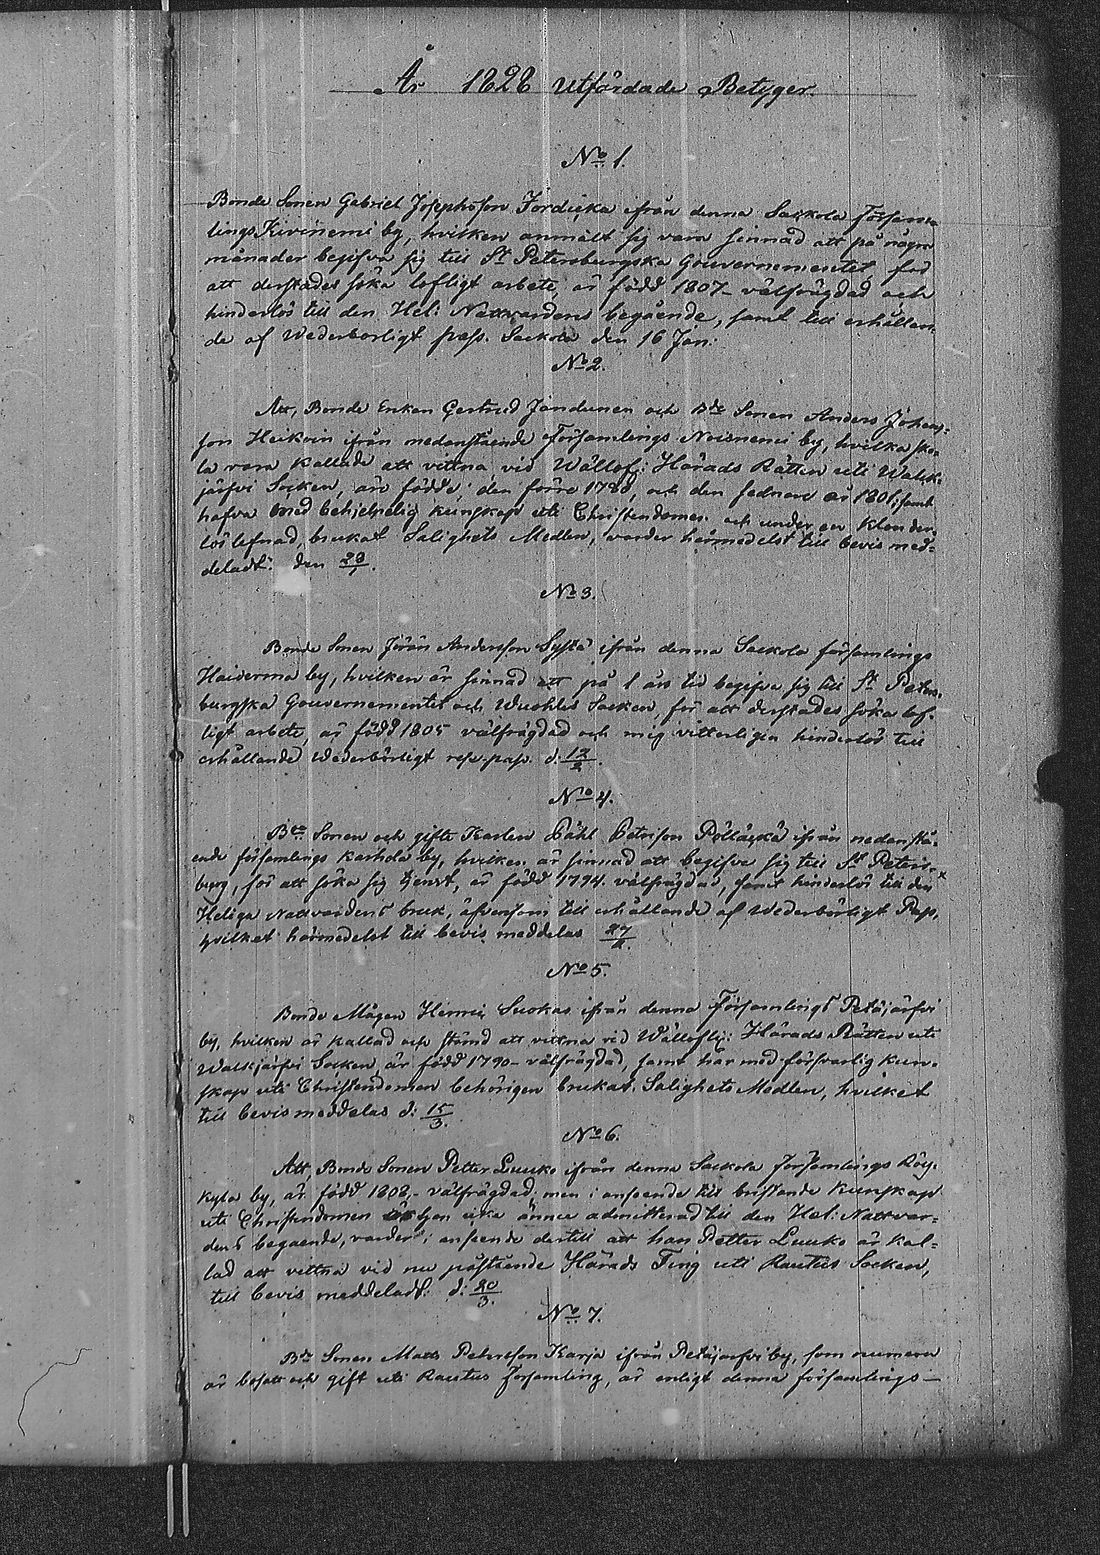 År 1828 Utfärdade Betyger.
No 1.
Bonde Sonen Gabriel Josephsson Jordicka ifrån denna Sackola Försam-
lings Kiviniemi by, hvilken anmält sig vara sinnad att på några
månader begifva sig till St Petersburgska Gouvernementet för
att derstädes söka lofligt arbete, är född 1807 - välfrägdad och
hinderlös till den Hel: Nattvardens begående, samt till erhållan-
de af Wederborligt pass. Sackola den 16 Jan:
No 2.
Att, Bonde Enkan Gertrud Jandunen och Bde Sonen Anders Johans-
son Heikoin ifrån nedanstående Församlings Noisniemi by, hvilka sko-
la vara kallade att vittna vid Wällof: Härads Rätten uti Walk-
järfvi Socken, äro födde; den förre 1780, och den sednare år 1801, samt
hafva med behjelpelig kunskap uti Christendomen och under en klander-
lös lefnad, brukat Salighets Medlen, varder härmedelst till bevis med-
deladt: den
No 3.
Bonde Sonen Jöran Andersson Systä ifrån denna Sackola församlings
Haiderma by, hvilken är sinnad att på 1 års tid begifva sig till St Peters-
burgska Gouvernementet och Wuohlis Socken, för att derstädes söka lof-
ligt arbete, är född 1805 välfrägdad och mig vitterligen hinderlös till
erhållande Wederbörligt pass. d: 12/2.
No 4.
Bde Sonen och gifte Karlen Påhl Petrisson Pölläckä ifrån nedanstå-
ende församlings Karhola by, hvilken är sinnad att begifva sig till St Peters-
burg, för att söka sig tjenst, är född 1794. välfrägdad, samt hinderlös till den
Heliga Nattvardens bruk, äfvensom till erhållande af Wederbörligt Pass,
hvilket härmedelst till bevis meddelas 27/2
No 5.
Bonde Mågen Henric Suokas ifrån denna Församlings Petäjärfvi
by, hvilken är kallad och stämd att vittna vid Wälloflig: Härads Rätten uti
Walkjärfvi Socken, är född 1790 - välfrägdad, samt har med försvarlig kun-
skap uti Christendomen behörigen brukat Salighets Medlen, hvilket
till bevis meddelas d: 15/3.
No 6.
Att, Bonde Sonen Petter Luuko ifrån denna Sackola Församlings Röy-
kylä by, är född 1808, - välfrägdad, men i anseende till bristande kunskap
uti Christendomen icke ännu admitterad till den Hel: Nattvar-
dens begaende, varder i anseende dertill att han Petter Luuko är kal-
lad att vittna vid nu påstående Härads Ting uti Rautus Socken,
till bevis meddeladt: d: 20/3.
No 7.
Bde Sonen Matts Petersson Karja ifrån Petäjarfvi by, som numera
är bosatt och gift uti Rautus Församling, är enligt denna församlings -